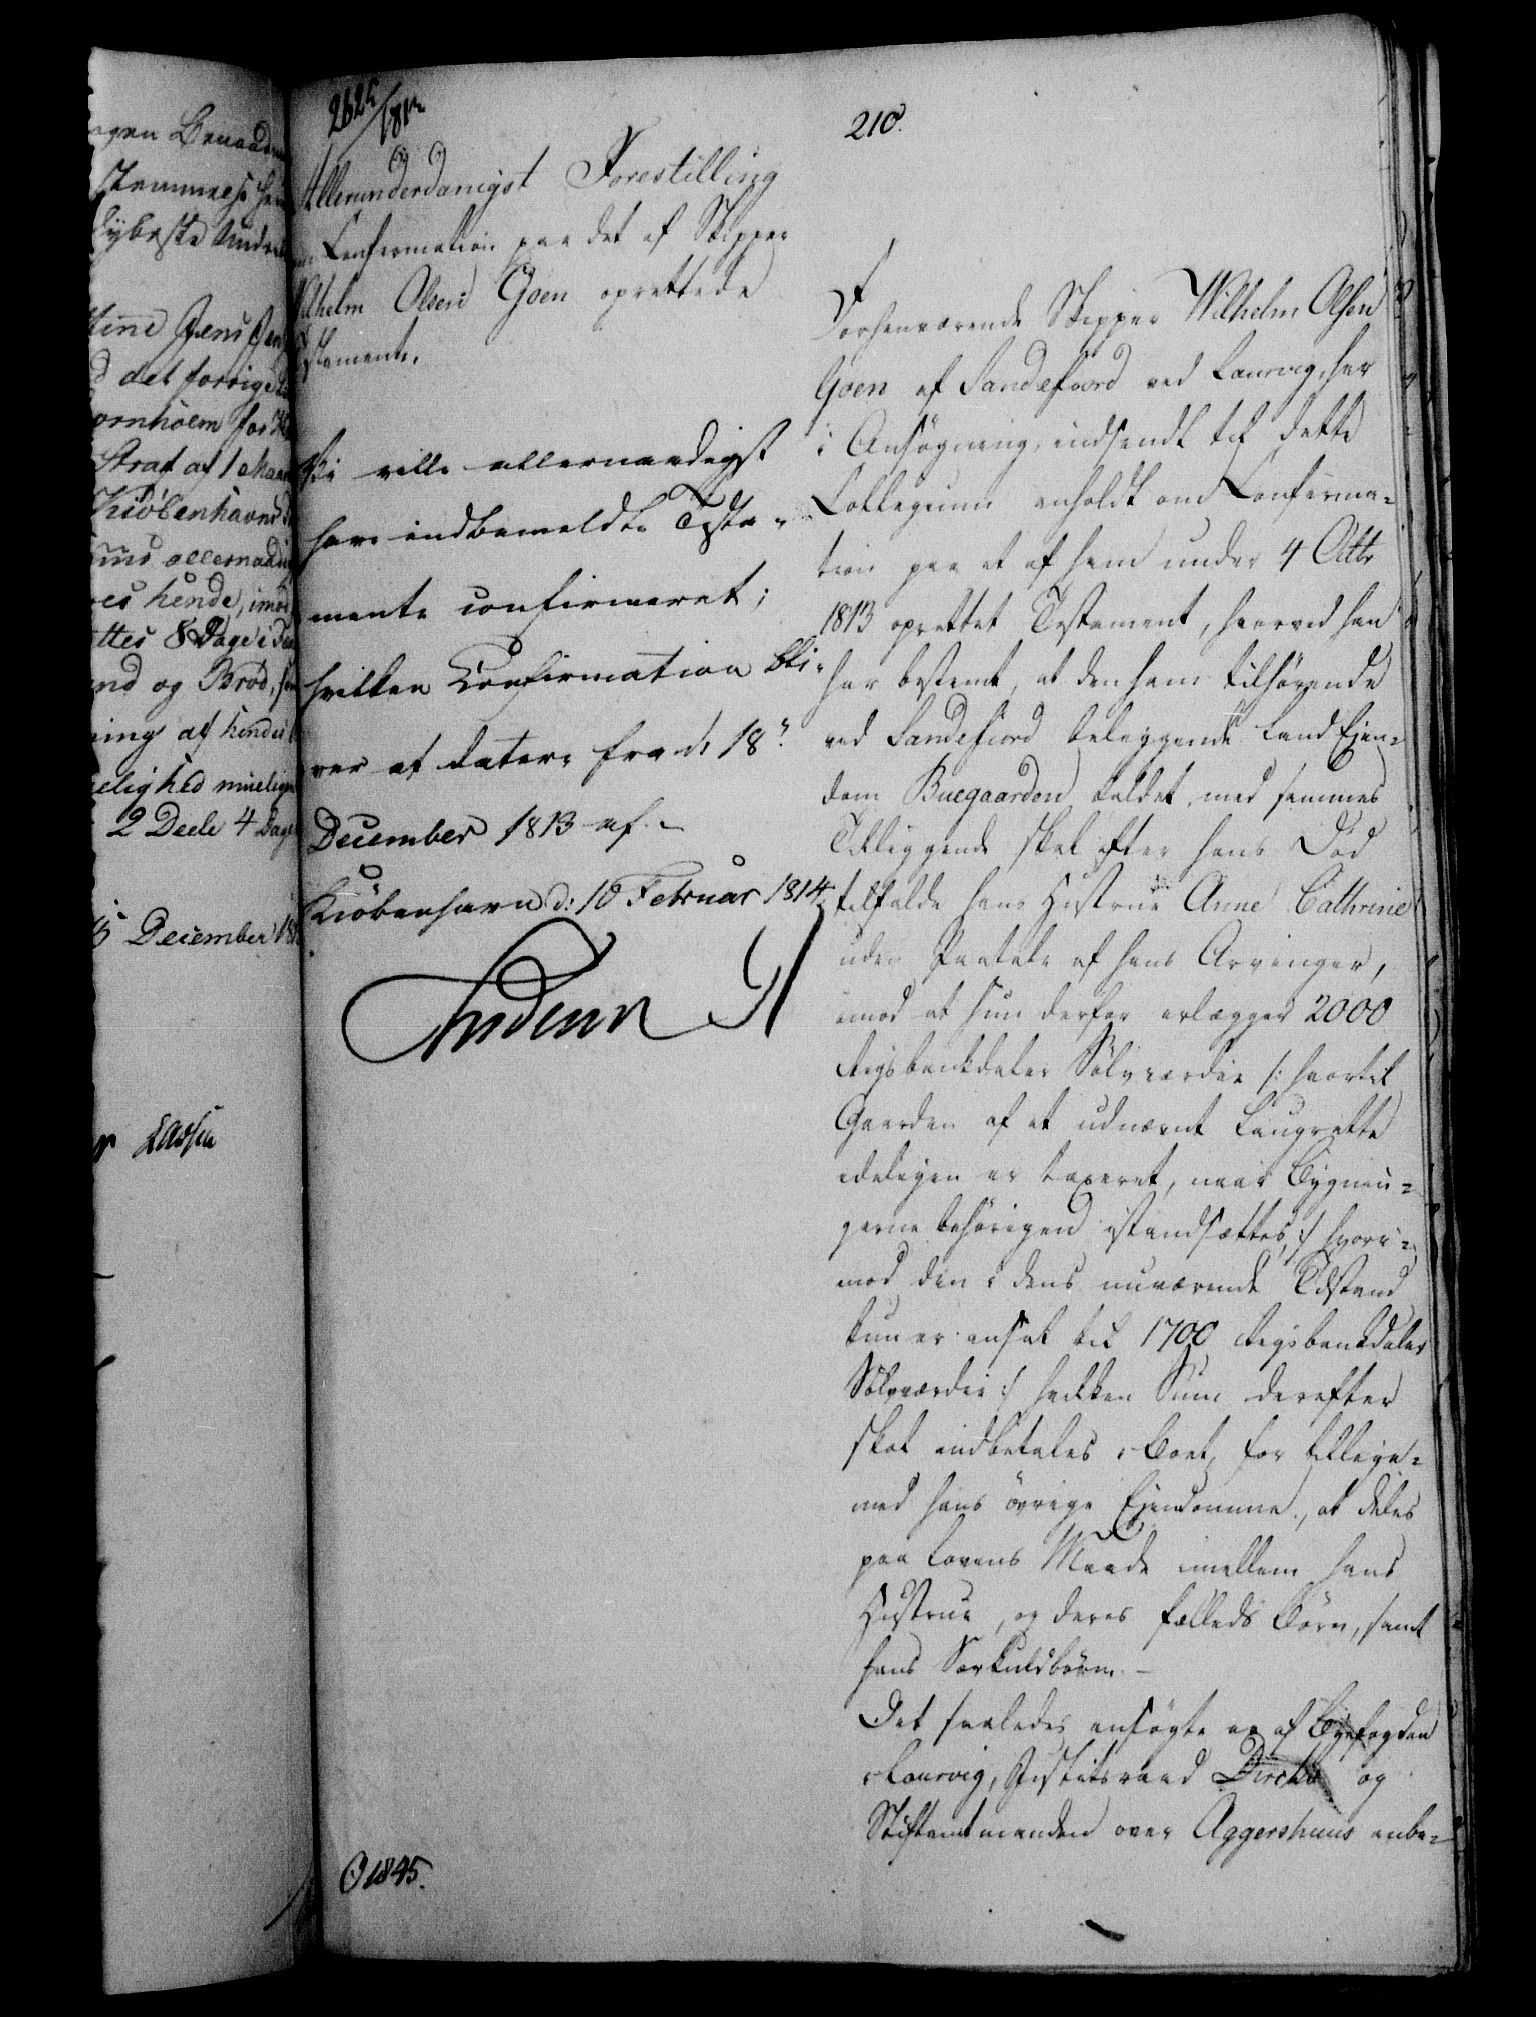 agen
stemmelse
dybeste
tine Jens
det forrige
ornholm for
Straf af 1
Kiöbenhavns
allernaadi
es hende, imod
ttes 8 Dage i
nd og Bröd,
ing af hendes
elighed
2 Deele 4 Dage
December 18
Lassen
2625/181
210.
Allerunderdanigst Forestilling
Confirmation paa det af Skipper
Wilhelm Olsen Goen oprettede
Testamente.
Vi ville allernaadigst
have indbemeldte Testa-
mente confirmeret;
hvilken Confirmation bli-
ver at datere fra d: 18de
December 1813 af.
Kiöbenhavn d: 10 Februar 1814.
Frederik R
Forhenværende Skipper Wilhelm Olsen
Goen af Sandefiord ved Laurvig, har
i Ansögning, indsendt til dette
Collegium anholdt om Confirma-
tion paa et af ham under 4 Octbr
1813 oprettet Testament, hvorved han
har bestemt, at den ham tilhörende
ved Sandefiord beliggende Land Ejen-
dom Buegaarden kaldet, med sammes
Tilliggende skal efter hans Död
tilfalde hans Hustrue Anne Cathrine
uden Paatale af hans Arvinger,
imod at hun derfor erlægger 2000
Rigsbankdaler Sölvværdie /: hvortil
Gaarden af et udnævnt Laugrette
edeligen er taxeret, naar Bygnin-
gerne behörigen istandsættes, :/ hvori-
mod den i dens nuværende Tilstand
kun er ansat til 1700 Rigsbankdaler
Sölvværdie :/ hvilken Sum derefter
skal indbetales i Boet, for tillige-
med hans övrige Ejendomme, at deles
paa Lovens Maade imellem hans
Hustrue, og deres fælleds Börn, samt
hans Særkuldbörn. —
Det saaledes ansögte er af Byefogden
i Laurvig, Justitsraad og
Stiftamtmanden over Aggershuus anbe-
O 1845.